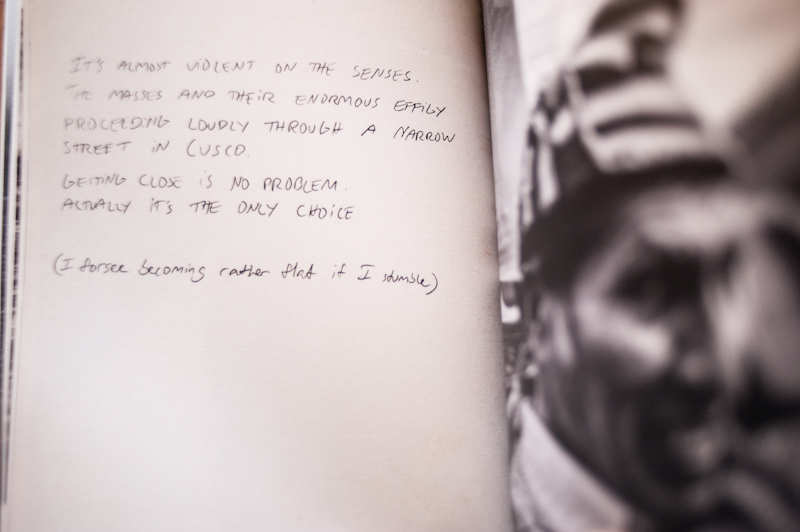 IT'S ALMOST VIOLENT ON THE SENSES.
THE MASSES AND THEIR ENORMOUS EFFIGY
PROCEEDING LOUDLY THROUGH A NARROW
STREET IN CUSCO.
GETTING CLOSE IS NO PROBLEM.
ACTUALLY IT'S THE ONLY CHOICE
(I forsee becoming rather flat if I stumble)